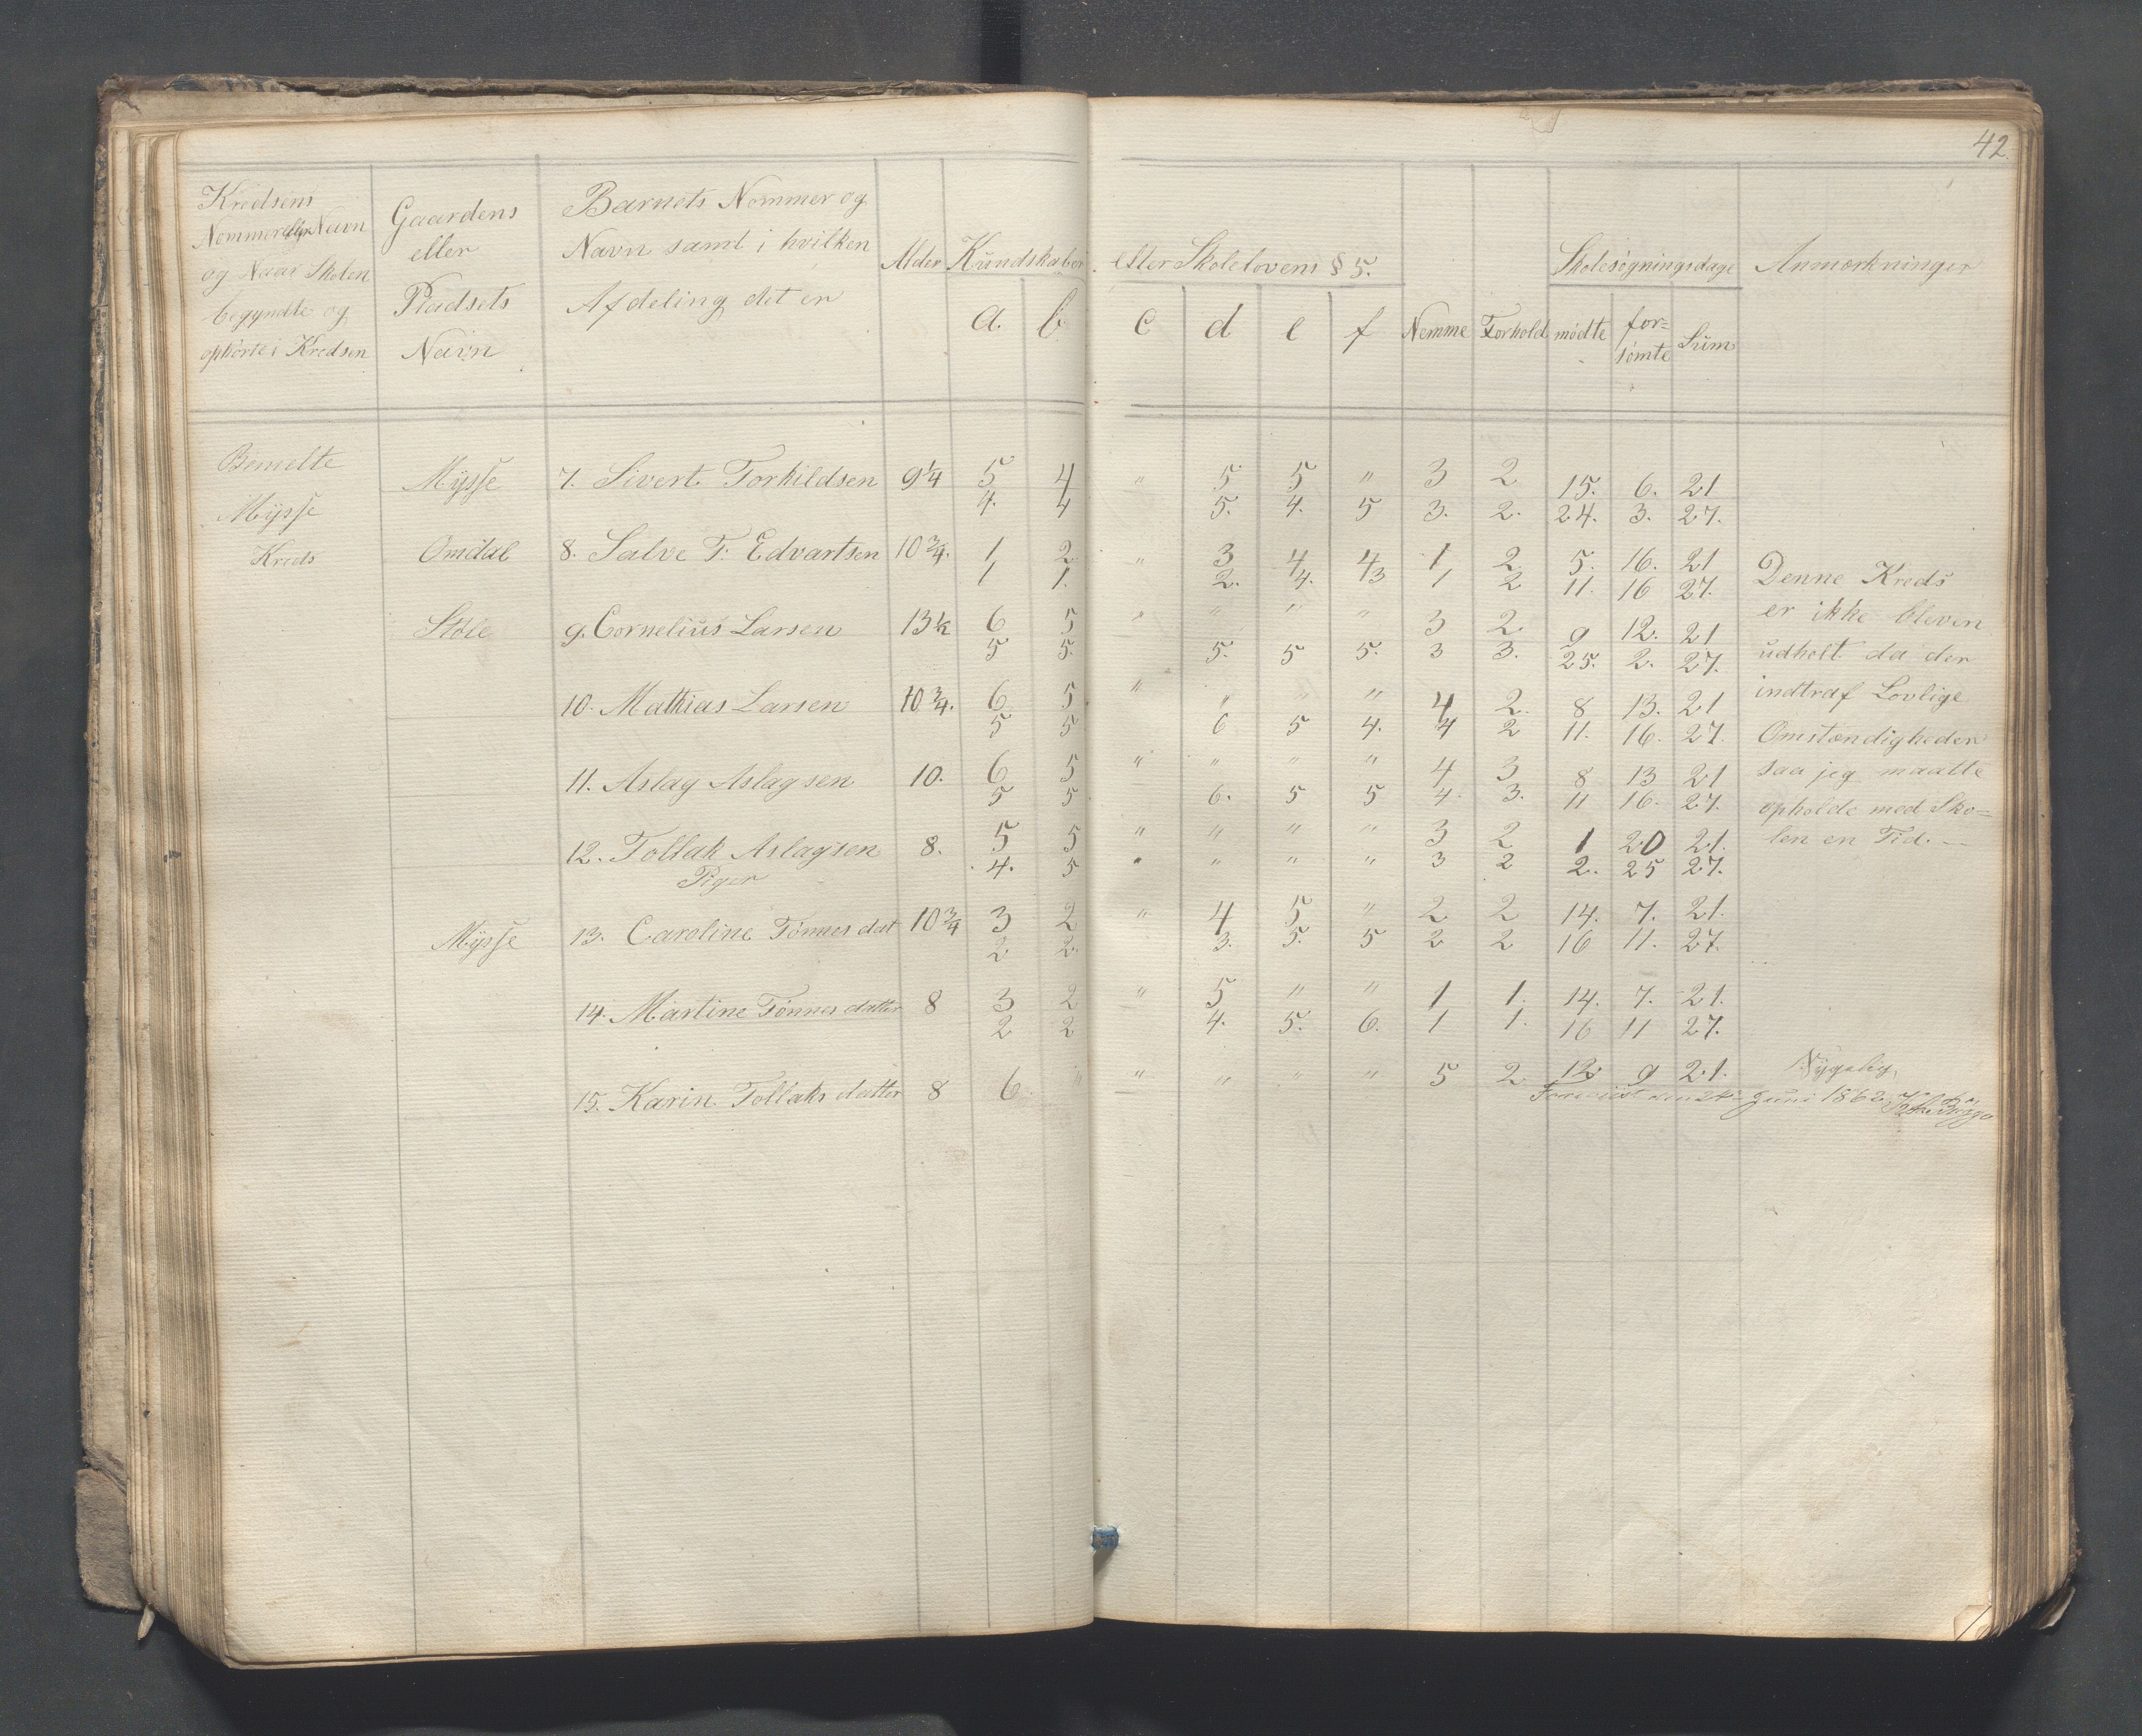 42.
Kredsens
Nommer eller Navn
og Naar Skolen
begyndte og
ophørte i Kredsen
Gaardens
eller
Pladsets
Navn
Barnets Nommer og
Navn samt i hvilken
Afdeling det er
Alder
Kundskaber efter Skolelovens § 5.
a. b. c d e f
Nemme Forhold
Skolesøgningsdage
mødte for=
sømte Sum
Anmærkninger
Bemelte
Mysse
Kreds
Mysse 7. Sivert Torkildsen 9¼ 5 4 " 5 5 " 3 2 15. 6. 21
4. 4 5. 4. 5 3. 2. 24. 3. 27.
Omdal 8. Salve T. Edvartsen 10¾. 1 2 " 3 4 4 1 2 5. 16. 21
1 1. 2. 4. 3 1 2 11. 16 27.
Støle 9. Cornelius Larsen 13½ 6 5 " " " " 3 2 9 12. 21
5 5. 5. 5 5. 3 3. 25. 2. 27.
10. Mathias Larsen 10¾. 6 5 " " " " 4 2. 8 13. 21
5 5 6 5 4. 4 2 11. 16. 27.
11. Aslag Aslagsen 10. 6 5 " " " " 4 3 8 13 21
5 5 6. 5 5 4. 3. 11 16. 27.
12. Tollak Aslagsen 8. 5 5 " " " " 3 2 1 20 21.
4. 5 " " " " 3 2 2. 25 27.
Piger
Mysse 13. Caroline Tønnesdat 10¾ 3 2 " 4 5 " 2 2 14. 7. 21.
2 2. 3. 5. 5 2 2 16 11. 27.
14. Martine Tønnesdatter 8 3 2 " 5 " " 1 1. 14. 7. 21.
2 2 4. 5. 6. 1 1. 16 11 27.
15. Karin Tollaksdatter 8 6 " " " " " 5 2 12 9 21.
Denne Kreds
er ikke bleven
udholt da der
indtraf Lovlige
Omstændigheder
saa jeg maatte
opholde med Sko=
len en Tid. —
Nygaby,
Foreviist den 24 Juni 1862